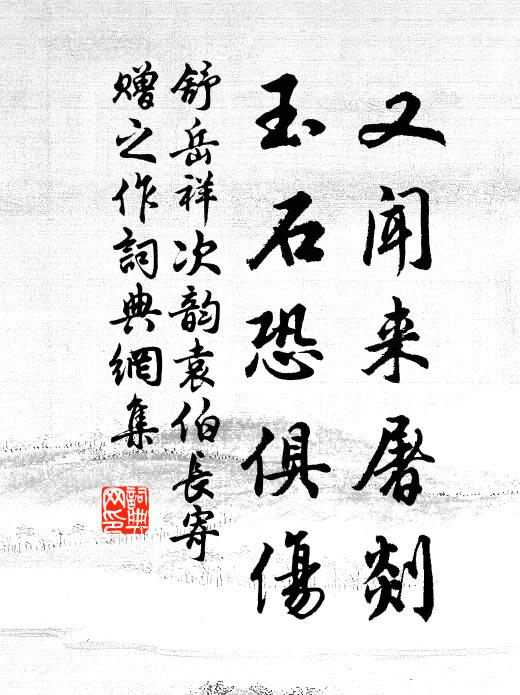 又闻来屠剡
玉石恐俱傷
舒岳祥次韵袁伯長寄
贈之作詞典網集
詞典网印